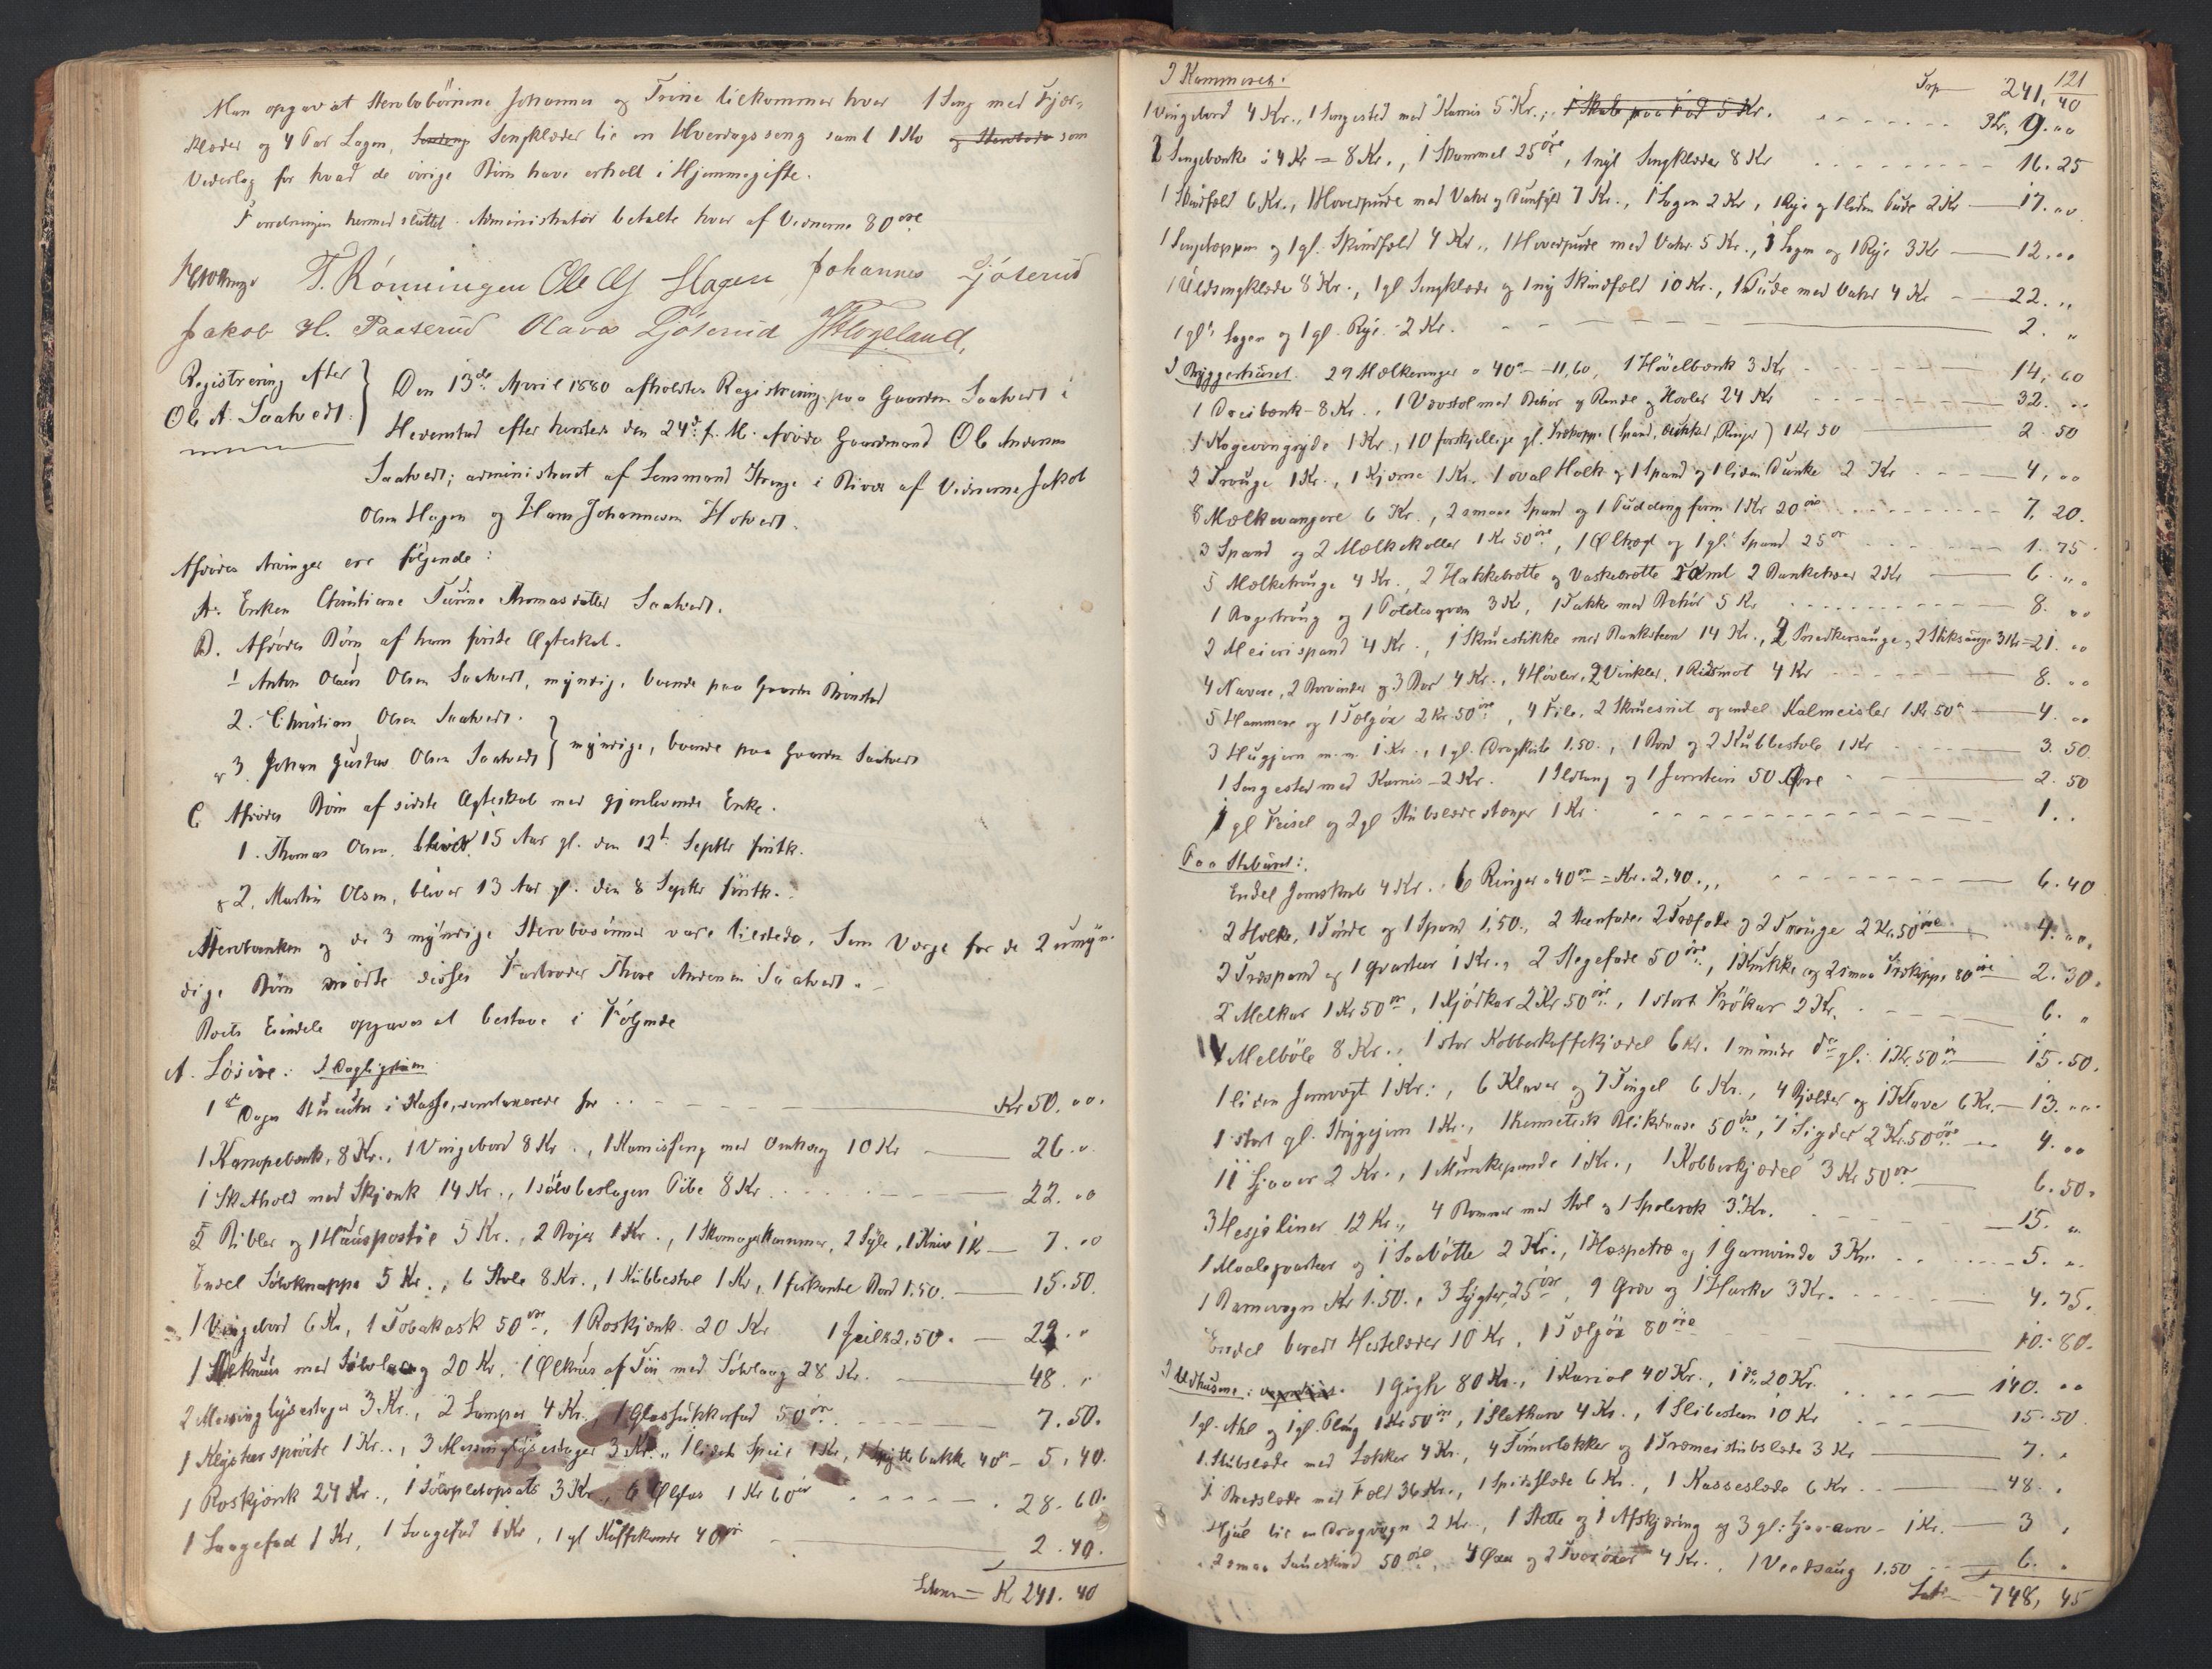 Man opgav at Stervbobörnene Johannes og Trine tilkommer hver 1 Seng med Fjær-
klæder og 4 Par Lagen, Sengklæder til en Hverdagsseng samt 1 Ko som
Vederlag for hvad de övrige Börn have erholdt i Hjemmegifte.
Forretningen hermed sluttet. Administrator betalte hver af Vidnerne 80 öre
T. Rönningen Ole Hagen Johannes Gjöterud
Jakob H. Paaterud Olava Gjöterud Hogeland,
Registrering efter
Ole A. Saatvedt.
Den 13de April 1880 afholdtes Registrering paa Gaarden Saatvedt i
Hedenstad efter herstede den 24de f. M. afdöde Gaardmand Ole Andersen
Saatvedt; administreret af Lensmand Strenge i Bivær af Vidnerne Jakob
Olsen Hagen og Hans Johannesen Hotvedt.
Afdödes Arvinger ere fölgende:
A. Enken Christiane Turine Thomasdatter Saatvedt.
B. Afdödes Börn af hans förste Ægteskab.
1 Anton Olaus Olsen Saatvedt, myndig, boende paa Gaarden Brönstad
2. Christian Olsen Saatvedt.
og 3. Johan Gustav Olsen Saatvedt } myndige, boende paa Gaarden Saatvedt
C Afdödes Börn af sidste Ægteskab med gjenlevende Enke.
1. Thomas Olsen, bliver 15 Aar gl. den 12te Septbr förstk.
& 2. Martin Olsen, bliver 13 Aar gl. den 8 Septbr förstk.
Stervboenken og de 3 myndige Stervbosönner vare tilstede. Som Værge for de 2 umyn-
dige Börn mödte disses Farbroder Thore Andersen Saatvedt.
Boets Eiendele opgaves at bestaae i Fölgende
A. Lösöre: I Dagligstuen
1 i Kasse, for Kr 50.""
1 Kanapebænk, 8 Kr., 1 Vingebord 8 Kr., 1 Karnisseng med Omhæng 10 Kr 26."
1 Skathold med Skjænk 14 Kr., 1 sölvbeslagen Pibe 8 Kr 22.""
5 Bibler og 1 Huuspostil 5 Kr., 2 Böjer 1 Kr., 1 Skomagerhammer, 2 Syle, 1 Kniv 1 K 7.""
Endel Sölvknappe 5 Kr., 6 Stole 8 Kr., 1 Kubbestol 1 Kr, 1 firkantet Bord 1.50. 15.50.
1 Vingebord 6 Kr, 1 Tobakask 50 öre, 1 Roskjænk 20 Kr 1 2,50. 29."
1 Ölkruus med Sölvlaag 20 Kr. 1 Ølkrus af Tin med Sölvlaag 28 Kr. 48."
2 Messinglysestager 3 Kr., 2 Lamper 4 Kr., 1 Glassukkerfad 50 öre 7.50.
1 Klysterspröite 1 Kr., 3 Messinglysestager 3 Kr., 1 lidet Speil 1 Kr, 1 Spyttebakke 40 ö 5,40.
1 Roskjænk 24 Kr., 1 3 Kr, 6 Ølglas 1 Kr 60 ör 28.60.
1 Saagefad 1 Kr, 1 Saagefad 1 Kr, 1 gl Kaffekande 40 ör 2.40.
Kr 241.40
121
I Kammerset. Trsp 241,40
1 Vingebord 4 Kr., 1 Sengested med Karnis 5 Kr., 1 Skab paa Fod 5 Kr. 9.""
2 Sengebænke à 4 Kr = 8 Kr., 1 Skammel 25 öre, 1 nyt Sengklæde 8 Kr 16.25
1 Skindfeld 6 Kr., 1 Hovedpude med Vahr og Dunfyld 7 Kr., 1 Lagen 2 Kr, 1 Rye og 1 liden Pude 2 Kr 17.""
1 Sengetæppe og 1 gl. Skindfeld 4 Kr., 1 Hovedpude med Vahr 5 Kr., 1 Lagen og 1 Rye 3 Kr 12.""
1 Uldsengklæde 8 Kr., 1 gl Sengklæde og 1 ny Skindfeld 10 Kr., 1 Pude med Vahr 4 Kr 22."
1 gl. Lagen og 1 gl. Rye 2 Kr. 2."
I Bryggerhuset. 29 Mælkeringer a 40 ö 11,60, 1 Hövelbænk 3 Kr 14,60
1 Dreibænk 8 Kr., 1 Vævstol med Behör og Rende og Hovler 24 Kr 32.""
1 Kogevengryde 1 Kr, 10 forskjellige gl. Trækopper (Spand, Ringer) 1 Kr 50 2.50
2 Trouge 1 Kr., 1 Kjerne 1 Kr. 1 oval Holk og 1 Spand og 1 liden Dunke 2 Kr 4,""
8 Mælkevangere 6 Kr., 2 smaa Spand og 1 Puddingform 1 Kr 20 öre 7,20.
3 Spand og 2 Mælkekoller 1 Kr 50 öre, 1 og 1 gl. Spand 25 ör 1.75
5 Mælketrouge 4 Kr, 2 Hakkebrætte og Vaskebrætte samt 2 Banketræer 2 Kr 6.""
1 Bagertroug og 1 Potetesqvern 3 Kr, 1 Takke med Behör 5 Kr 8.""
2 Meierispand 4 Kr., 1 Skruestikke med Banksteen 14 Kr., 2 Snedkersauge, 2 Stiksauge 3 Kr = 21.""
4 Navere, 2 Borvinder og 3 Bor 4 Kr., 4 Hövler, 2 Vinkler, 1 Ridsmot 4 Kr 8.""
5 Hammere og 1 Tælgöx 2 Kr 50 öre, 4 File, 2 Skruesnit og endel Kalmeisler 1 Kr 50 ö 4.""
3 Hugjern m.m. 1 Kr., 1 gl. Dragkiste 1.50., 1 Bord og 2 Kubbestole 1 Kr 3.50.
1 Sengested med Karnis 2 Kr. 1 Ildtang og 1 Jernstein 50 Øre 2.50
1 gl Feisel og 2 gl Stubslædestænger 1 Kr 1..
Paa Stabburet:
Endel Jernskrab 4 Kr. 6 Ringer a 40 ör = Kr. 2,40., 6.40
2 Holke, 1 Tönde og 1 Spand 1,50., 2 Steenfade 2 Træfade og 2 Trouge 2 Kr. 50 öre 4."".
2 Træspand og 1 Qvarteer 1 Kr., 2 Stegefade 50 öre, 1 Krukke og 2 smaa Trækopper 80 öre 2.30.
2 Melkar 1 Kr 50 ör, 1 Kjödkar 2 Kr 50 öre, 1 stort Frökar 2 Kr. 6."
4 Melböle 8 Kr., 1 stor Kobberkaffekjædel 6 Kr. 1 mindre do gl. 1 Kr. 50 ör 15.50.
1 liden Jernvægt 1 Kr., 6 Klaver og 7 Tingel 6 Kr., 4 Bjelder og 1 Klave 6 Kr. 13.""
1 stort gl. Strygejern 1 Kr., 1 hermetisk Blikdaase 50 öre, 7 Sigder 2 Kr. 50 öre 4.""
11 Ljaaer 2 Kr., 1 Munkepande 1 Kr., 1 Kobberkjædel 3 Kr 50 ör 6.50.
3 Hesjeliner 12 Kr., 4 Rammer med Stol og 1 Spolerok 3 Kr. 15."
1 Maaleqvarteer og 1 Saabötte 2 Kr., 1 Haspetræ og 1 Garnvinde 3 Kr. 5."
1 Barnevogn Kr 1.50., 3 Lygter 25 öre, 9 Grev og 1 Harke 3 Kr. 4.75.
Endel beredt Hesteleder 10 Kr, 1 Tælgöx 80 öre 10.80.
I Udhusene: 1 Gigh 80 Kr., 1 Kariol 40 Kr., 1 do 20 Kr. 140.""
1 gl. Ahl og 1 gl. Plóug 1 Kr 50 ör, 1 Sletharv 4 Kr., 1 Slibesteen 10 Kr 15.50
1 Stubslæde med Lækker 4 Kr., 4 Tömmerlækker og 1 Træmeistubslæde 3 Kr 7."
1 Bredslæde med Feld 36 Kr., 1 Spidsslæde 6 Kr., 1 Kasseslæde 6 Kr. 48."
Hjul til en Dragvogn 2 Kr., 1 Slette og 1 Afskjæring og 3 gl. 1 Kr. 3"
2 smaa Saueskind 50 öre, 4 Öxer og 2 Tværöxer 4 Kr., 1 Veedsaug 1.50 6."
748,45